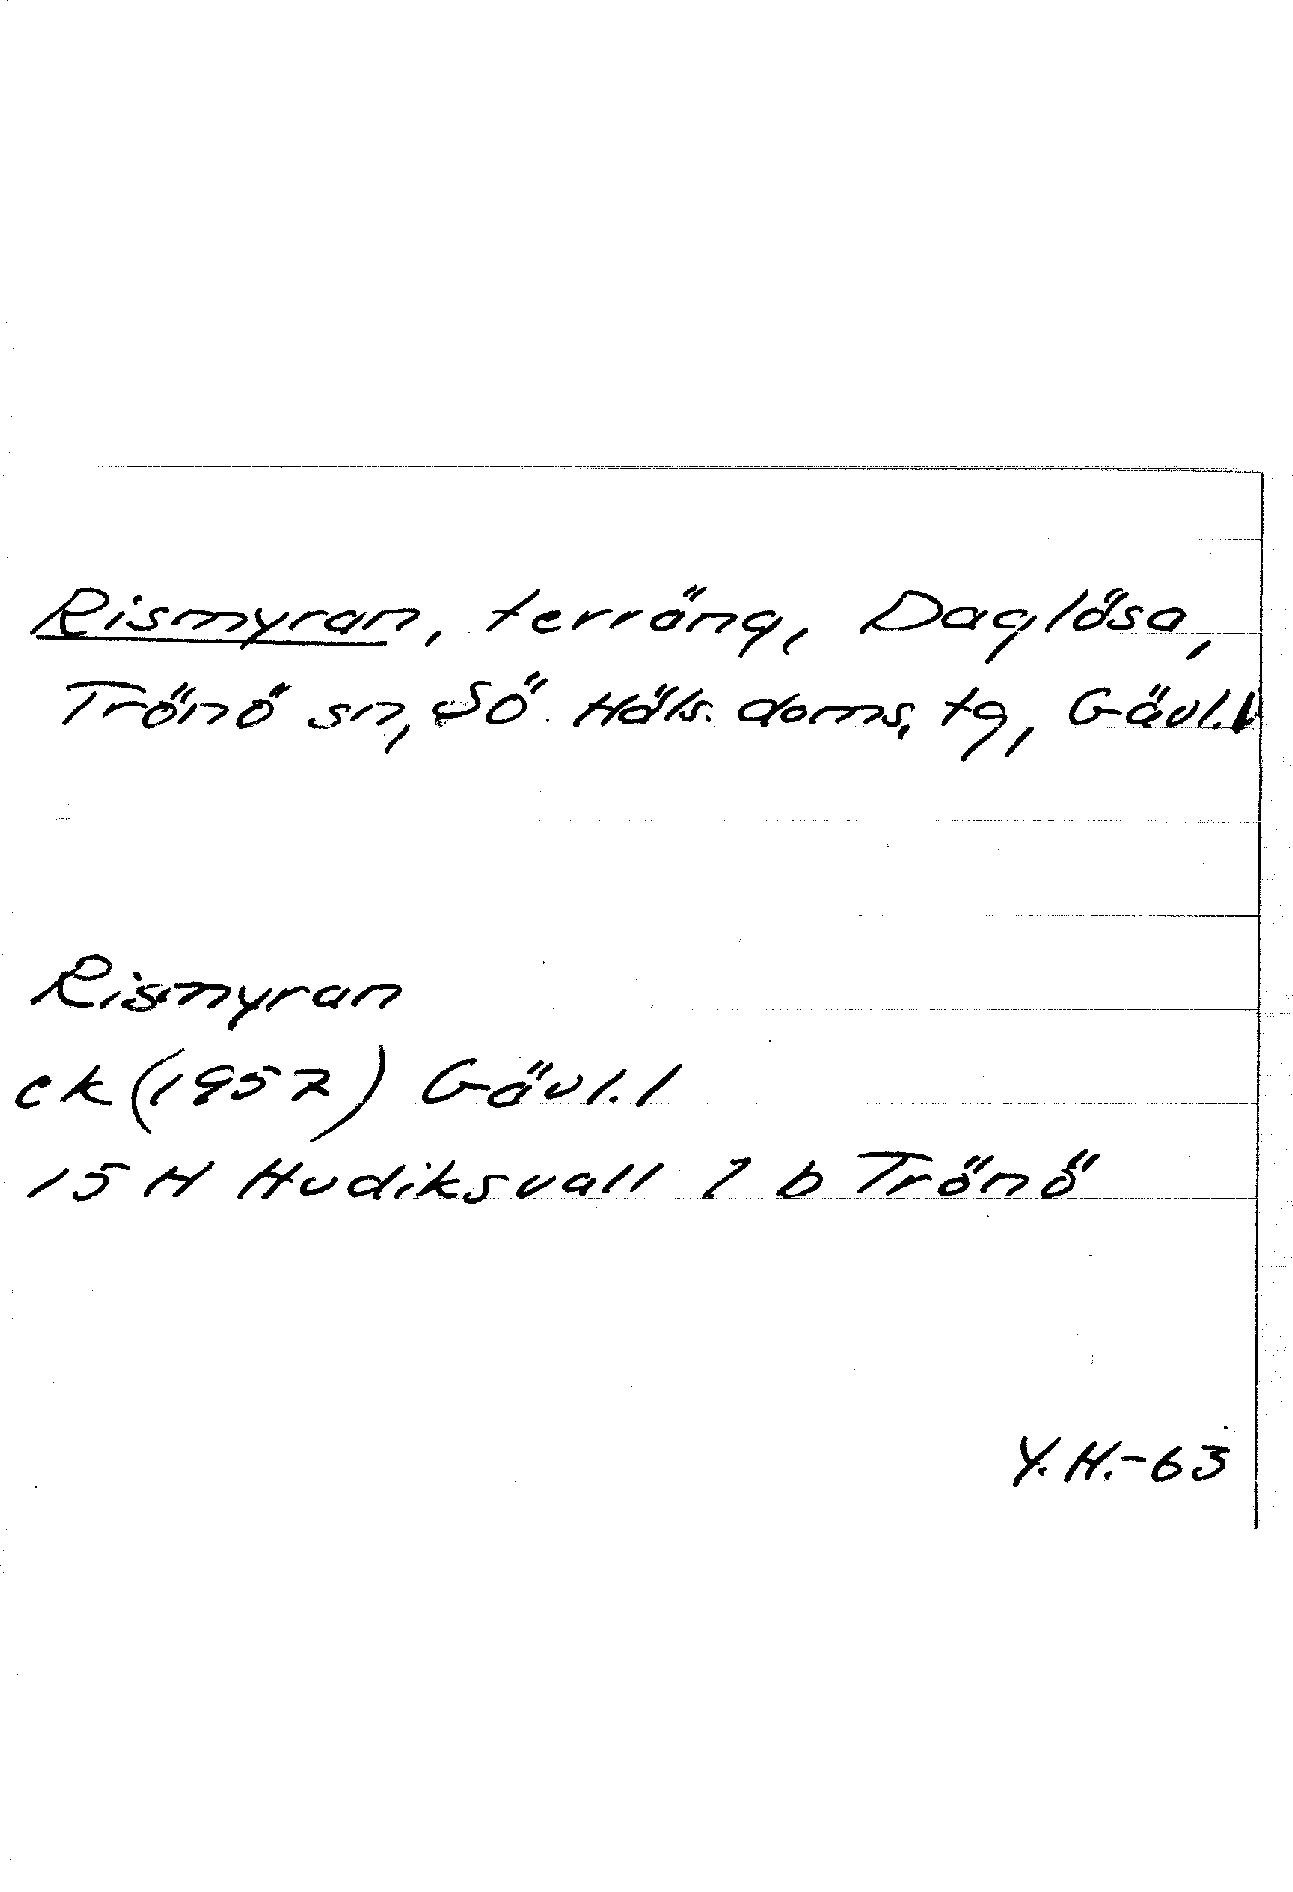 Rismyran, terräng, Daglösa,
Trönö sn, SÖ Häls. doms. tg, Gävl. l
Rismyran
ek (1957) Gävl. l
15 H Hudiksvall 1 b Trönö
Y.H.-63